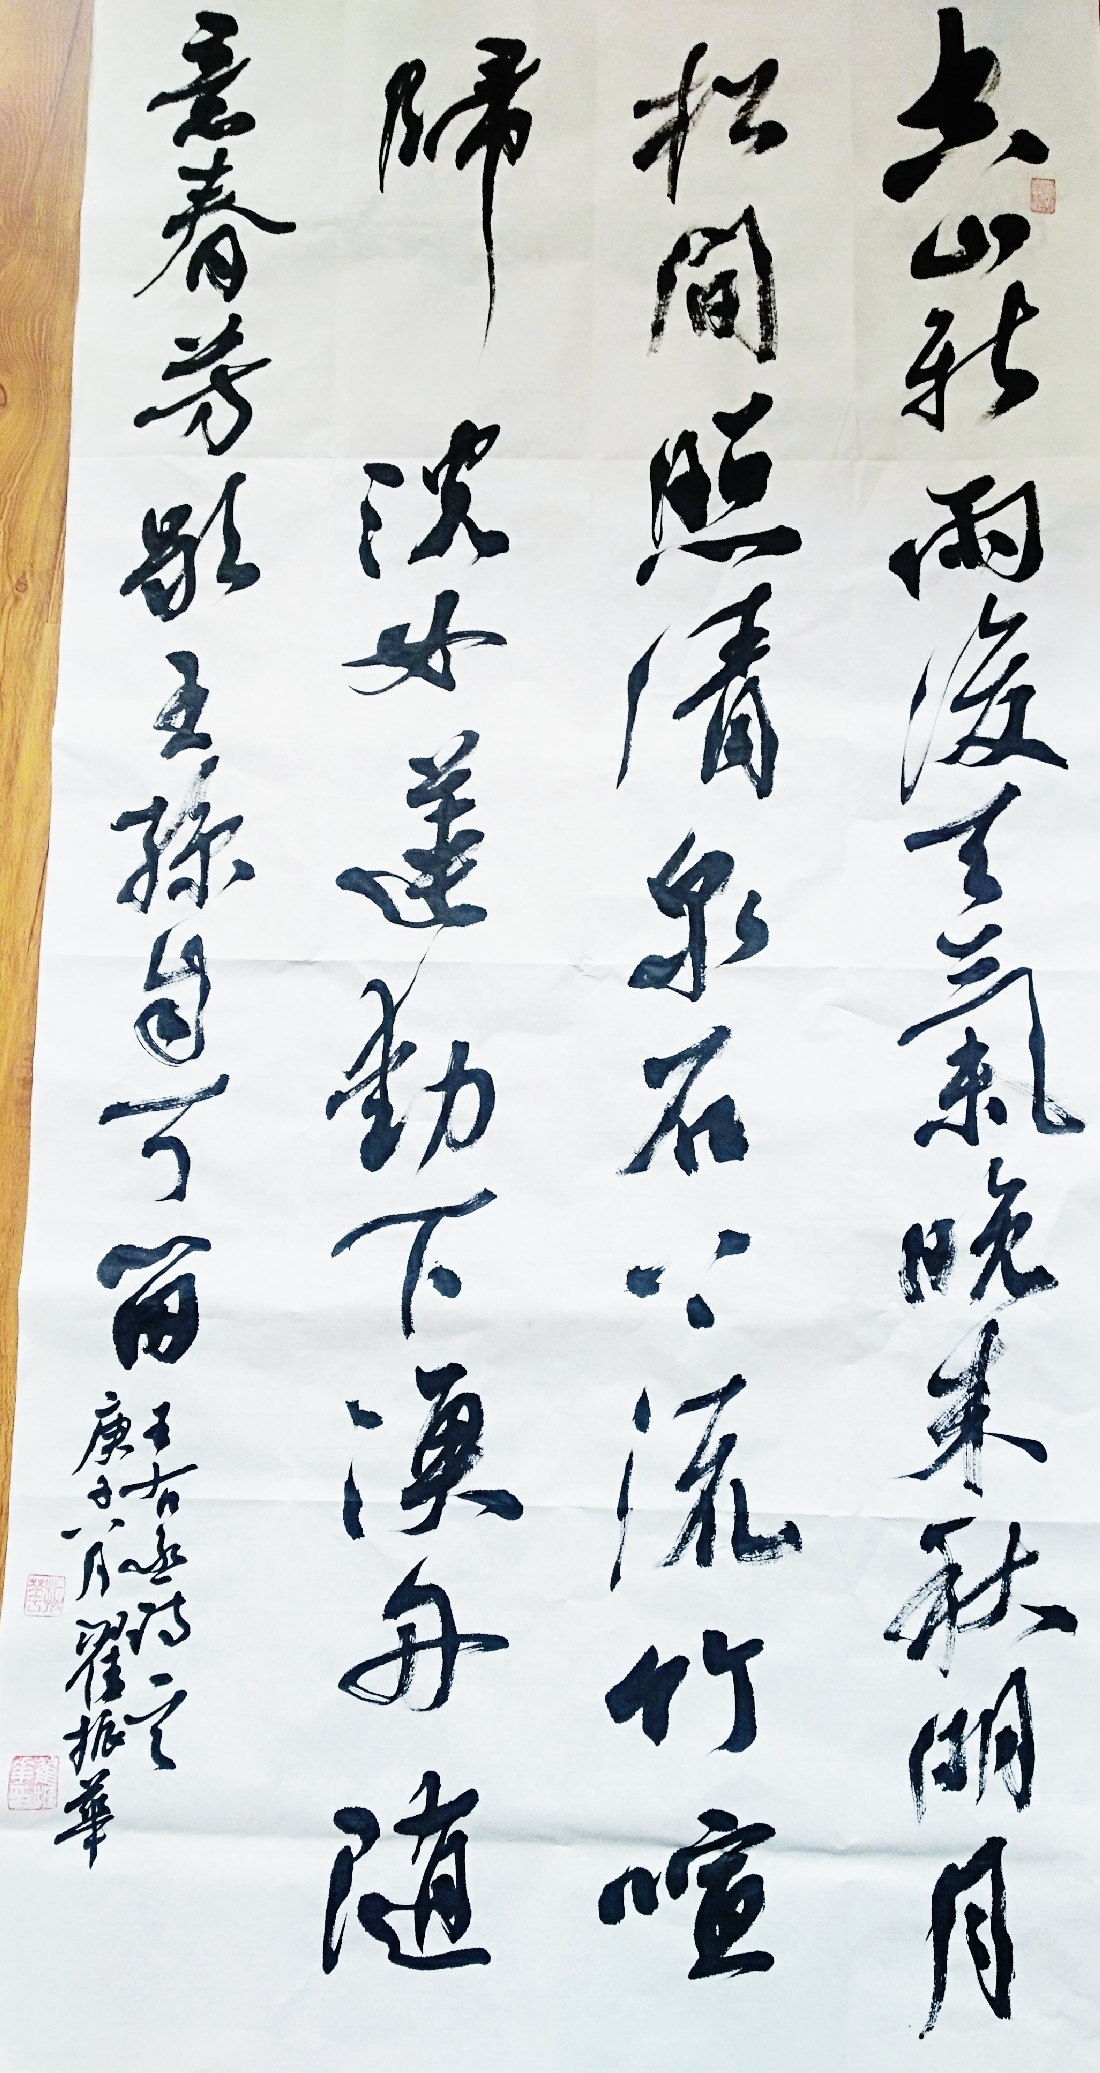 空山新雨後天氣晚來秋明月
松間照清泉石上流竹喧
歸浣女蓮動下漁舟隨
意春芳歇王孫自可留
王右丞詩一
庚子八月翟振華